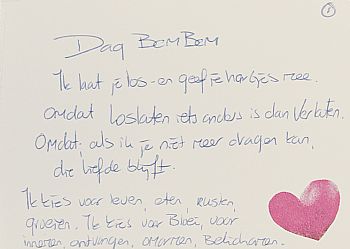 1
Dag BemBem
Ik laat je los - en geef je hartjes mee.
Omdat loslaten iets anders is dan verlaten.
Omdat, als ik je niet meer dragen kan,
die liefde blijft.
Ik kies voor leven, eten, rusten,
groeien. Ik kies voor Bloei, voor
innemen, ontvangen, omarmen,